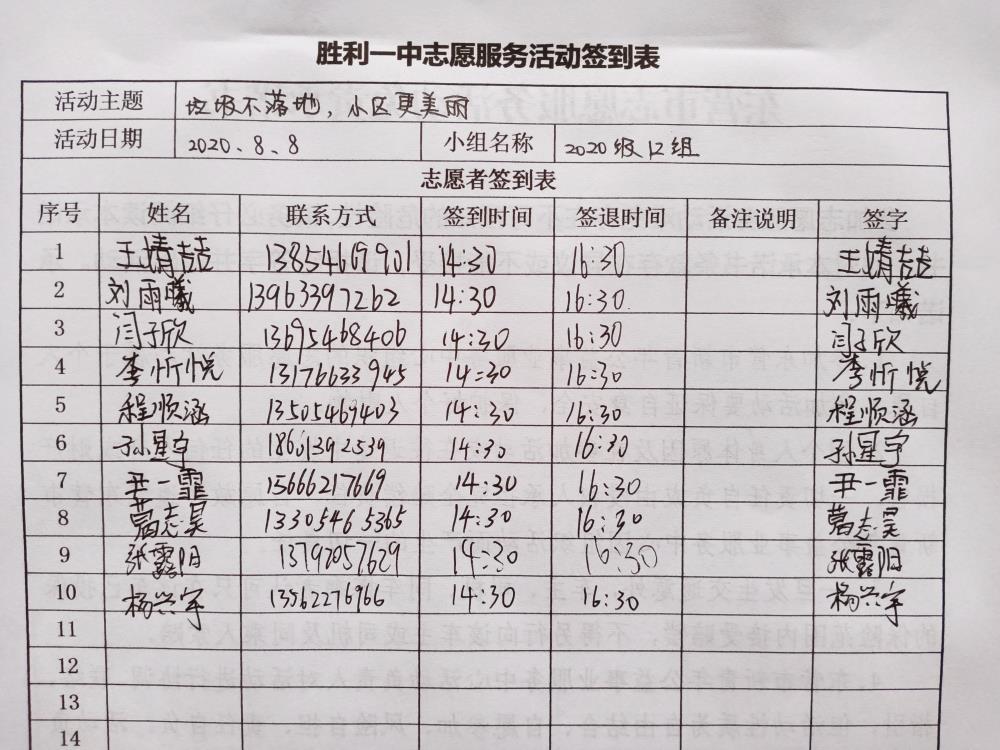 胜利一中志愿服务活动签到表
活动主题 垃圾不落地，小区更美丽
活动日期 2020.8.8 小组名称 2020级12组
志愿者签到表
序号 姓名 联系方式 签到时间 签退时间 备注说明 签字
1 王婧喆 13854669901 14:30 16:30 王婧喆
2 刘雨曦 13963397262 14:30 16:30 刘雨曦
3 闫子欣 13695468406 14:30 16:30 闫子欣
4 李忻悦 13176633945 14:30 16:30 李忻悦
5 程顺涵 13505467403 14:30 16:30 程顺涵
6 孙星宇 14:30 16:30 孙星宇
7 尹一霏 15666217669 14:30 16:30 尹一霏
8 葛志昊 13305465365 14:30 16:30 葛志昊
9 张露阳 13792057629 14:30 16:30 张露阳
10 杨兴宇 13562276966 14:30 16:30 杨兴宇
11
12
13
14